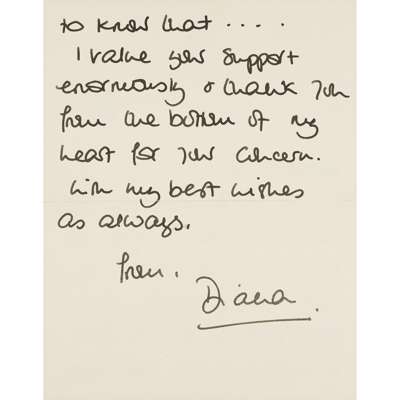 to know that ....
I value your support
enormously & thank you
from the bottom of my
heart for your concern.
with my best wishes
as always,
from.
Diana.